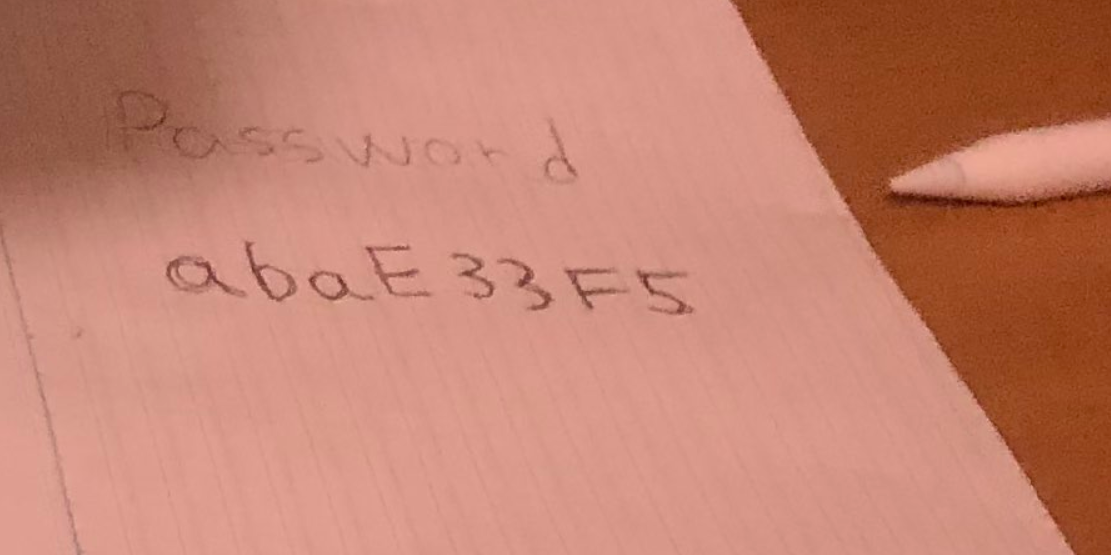 Password
abaE33F5